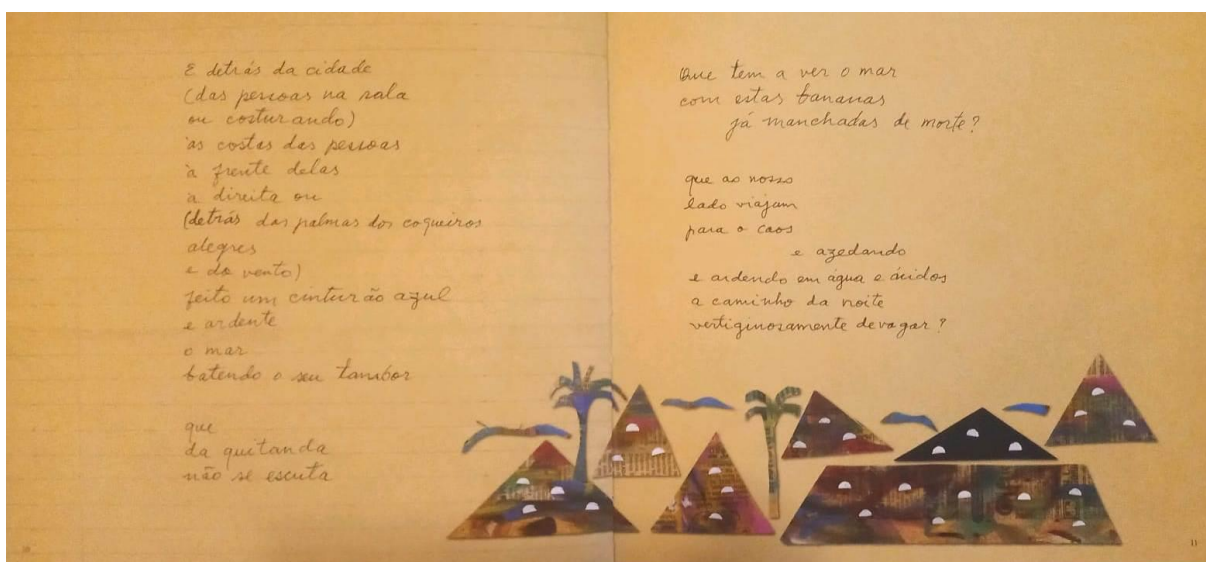 E detrás da cidade
(das pessoas na sala
ou costurando)
às costas das pessoas
à frente delas
à direita ou
(detrás das palmas dos coqueiros
alegres
e do vento)
feito um cinturão azul
e ardente
o mar
batendo o seu tambor
que
da quitanda
não se escuta
10
Que tem a ver o mar
com estas bananas
já manchadas de morte?
que ao nosso
lado viajam
para o caos
e azedando
e ardendo em água e ácidos
a caminho da noite
vertiginosamente devagar?
11